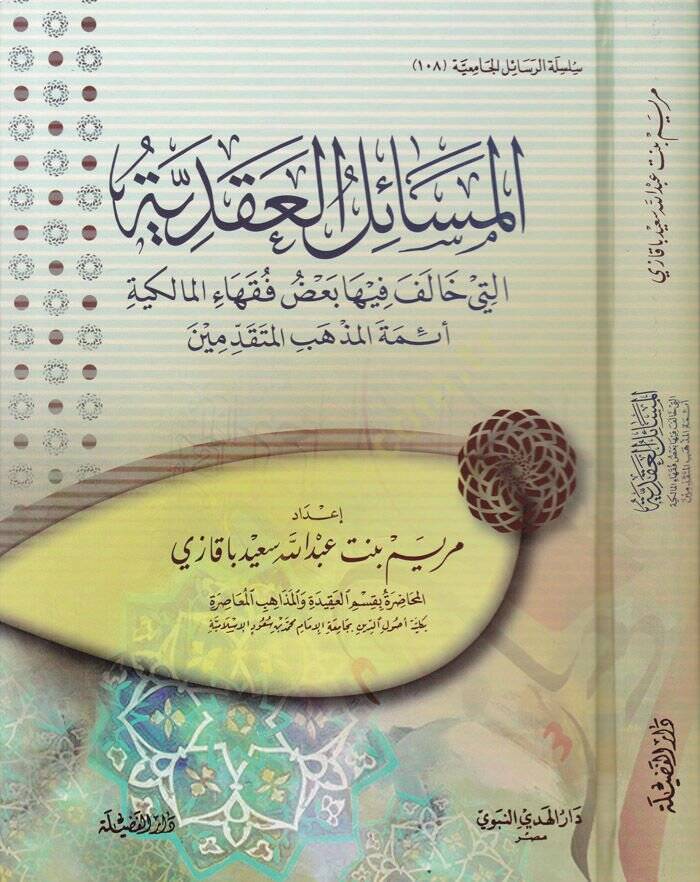 سِلْسِلَة الرسَائِل الجَامِعيَّة (١٠٨)
المَسَائِلُ العَقَدِيَّةُ
التِي خَالَفَ فِيهَا بَعْضُ فُقَهَاءِ المَالكيةِ
أئِمةَ المَذهَبِ المُتَقَدِّمِينَ
إعْدَاد
مريم بنت عبدالله سعيد باقازي
المحَاضِرَة بقِسْمِ العَقِيدَة وَالمَذَاهِبِ المُعَاصِرَة
بكليَّة أصُول الدِّين بجَامِعَة الإمَام محمَّد بن سُعُود الإسْلاميَّة
دَارُ الهَدي النبَوي
مصر
دَارُ الفَضيْلَة
مريم بنت عبدالله سعيد باقازي
المَسَائِلُ العَقَدِيَّةُ
التي خَالَفَ فِيهَا بَعْضُ فُقَهَاءِ المالكية
أئِمةَ المَذهَبِ المُتَقَدِّمِينَ
دَارُ الفَضيْلَة